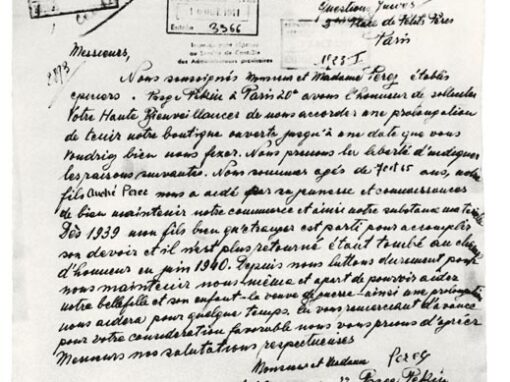 Questions Juives
Place des Petits Pères
Paris
1 OCT 1941
Entrée 3366
Messieurs,
2873
N: 23 I
Nous soussignés Monsieur et Madame Perec établis
épiciers à Paris 20e avons l'honneur de solliciter
Votre Haute Bienveillance de nous accorder une prolongation
de tenir notre boutique ouverte jusqu'à une date que vous
voudriez bien nous fixer. Nous prenons la liberté d'indiquer
les raisons suivantes. Nous sommes agés de 65 ans, notre
fils André Perec nous a aidé par sa jeunesse et connaissances
de bien maintenir notre commerce et ainsi notre substance
Dès 1939 mon fils bien qu'étranger est parti pour accomplir
son devoir et il n'est plus retourné étant tombé au champ
d'honneur en juin 1940. Depuis nous luttons durement pour
nous maintenir nous-même et apart de pouvoir aider
notre bellefille et son enfant - la veuve de guerre - ainsi une prolongation
nous aidera pour quelque temps. En vous remerciant d'avance
pour votre consideration favorable nous vous prions d'agréer
Messieurs nos salutations respectueuses
Monsieur et Madame Perec